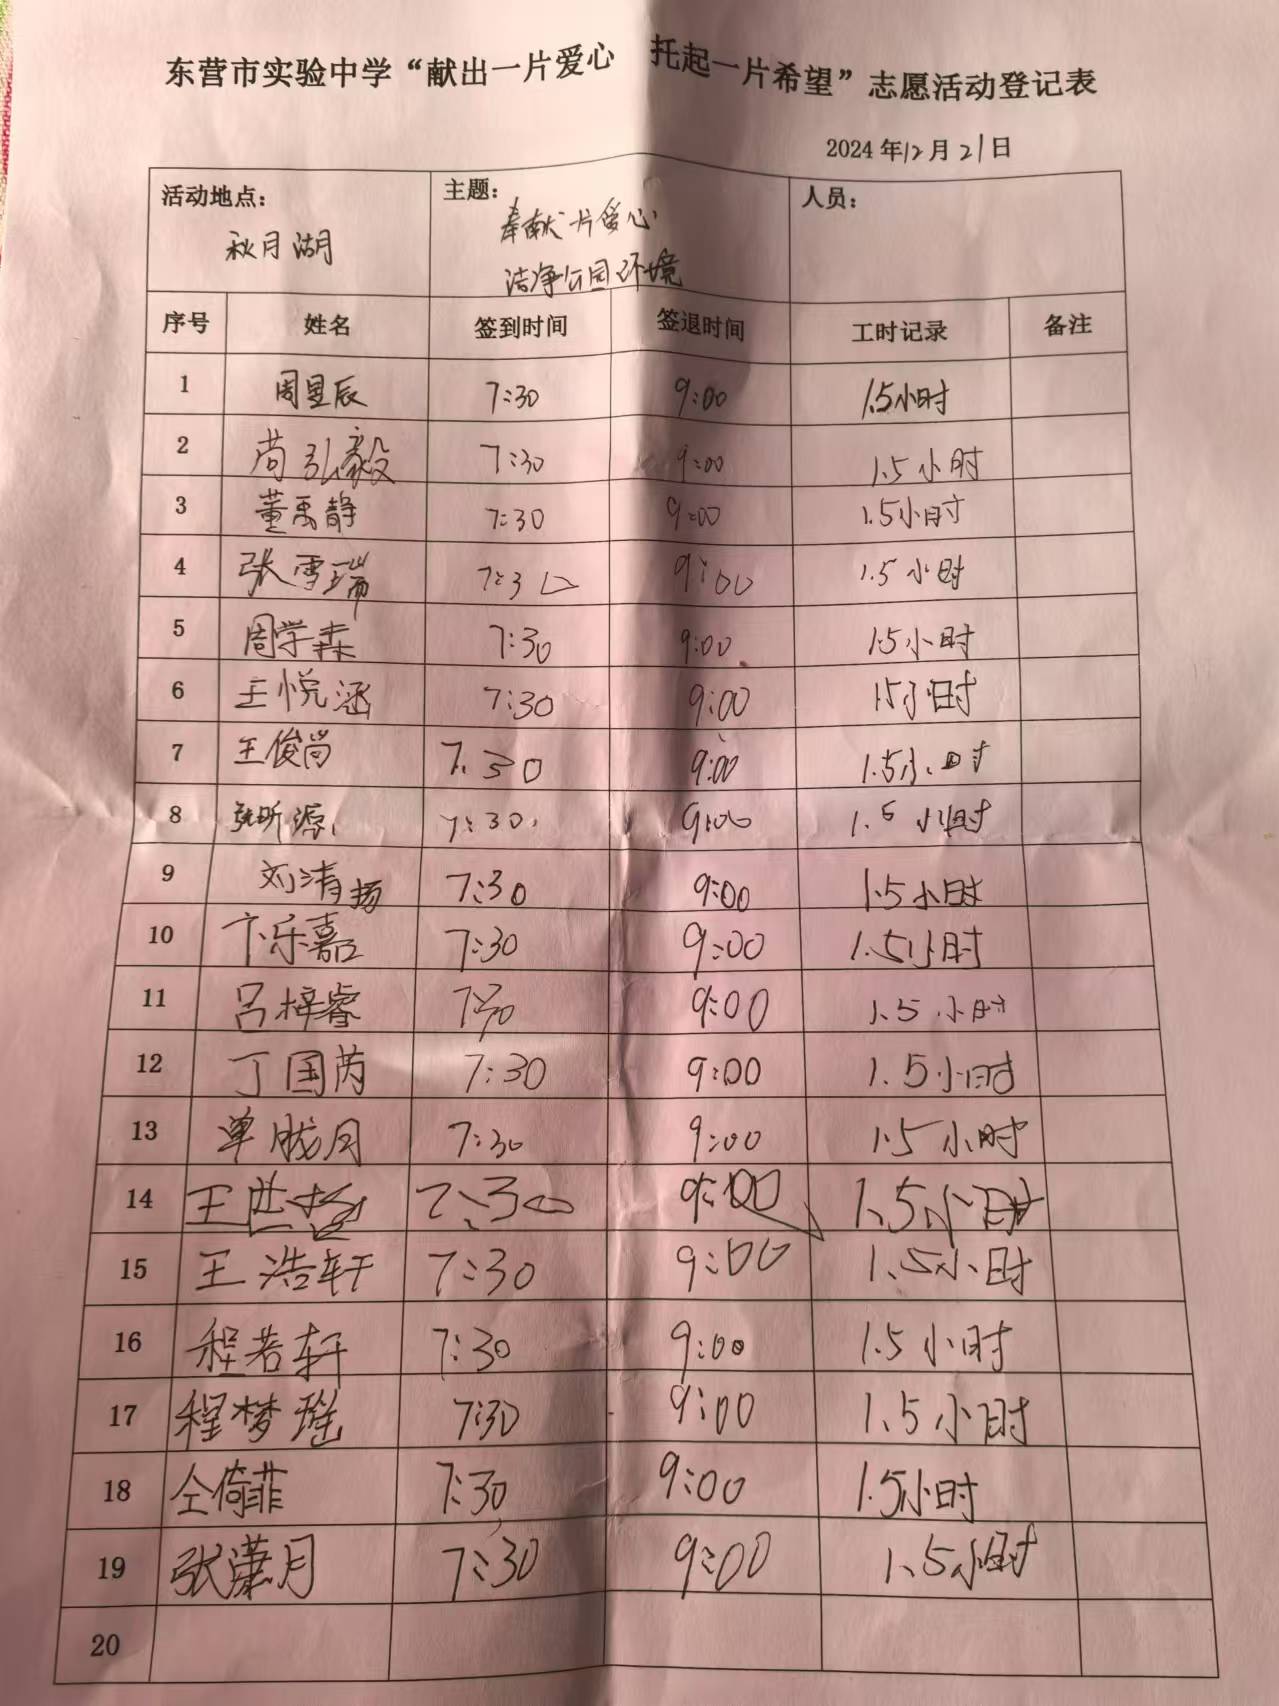 东营市实验中学“献出一片爱心 托起一片希望”志愿活动登记表
2024年12月21日
活动地点： 主题： 人员：
秋月湖 奉献一片爱心
洁净公园环境
序号 姓名 签到时间 签退时间 工时记录 备注
1 周昱辰 7:30 9:00 1.5小时
2 苘弘毅 7:30 9:00 1.5小时
3 董禹静 7:30 9:00 1.5小时
4 张雪瑞 7:30 9:00 1.5小时
5 周学森 7:30 9:00 1.5小时
6 王悦涵 7:30 9:00 1.5小时
7 王俊尚 7:30 9:00 1.5小时
8 张昕源 7:30 9:00 1.5小时
9 刘清扬 7:30 9:00 1.5小时
10 卞乐嘉 7:30 9:00 1.5小时
11 吕梓睿 7:30 9:00 1.5小时
12 丁国芮 7:30 9:00 1.5小时
13 单胧月 7:30 9:00 1.5小时
14 王 7:30 9:00 1.5小时
15 王浩轩 7:30 9:00 1.5小时
16 程若轩 7:30 9:00 1.5小时
17 程梦瑶 7:30 9:00 1.5小时
18 仝倚菲 7:30 9:00 1.5小时
19 张潇月 7:30 9:00 1.5小时
20